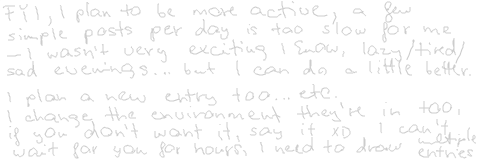 FYI, I plan to be more active, a few
simple posts per day is too slow for me
— I wasn't very exciting I know, lazy/tired/
sad evenings... but I can do a little better.
I plan a new entry too... etc.
I change the environment they're in too,
if you don't want it, say it XD I can't
wait for you for hours, I need to draw multiple
entries